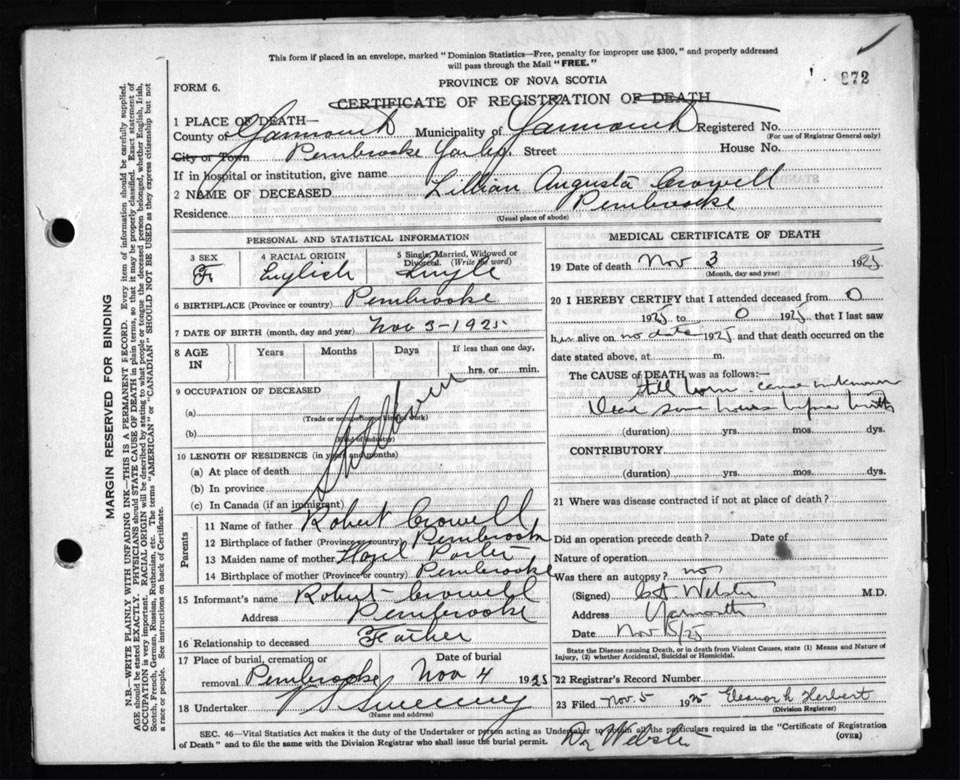 This form if placed in an envelope, marked "Dominion Statistics—Free, penalty for improper use $300," and properly addressed
will pass through the Mail "FREE."
272
PROVINCE OF NOVA SCOTIA
FORM 6.
CERTIFICATE OF REGISTRATION OF DEATH
1 PLACE OF DEATH—
County of Yarmouth Municipality of Yarmouth Registered No.
(For use of Registrar General only)
City or Town Pembrooke Street House No.
If in hospital or institution, give name
2 NAME OF DECEASED Lillian Augusta Crowell
Residence Pembrooke
(Usual place of abode)
PERSONAL AND STATISTICAL INFORMATION
3 SEX 4 RACIAL ORIGIN 5 Single, Married, Widowed or Divorced. (Write the word)
F English Single
6 BIRTHPLACE (Province or country) Pembrooke
7 DATE OF BIRTH (month, day and year) Nov 3-1925
8 AGE IN Years Months Days If less than one day,
hrs. or min.
9 OCCUPATION OF DECEASED
(a)
(Trade or occupation)
(b)
(Kind of industry)
Stillborn
10 LENGTH OF RESIDENCE (in years and months)
(a) At place of death
(b) In province
(c) In Canada (if an immigrant)
Parents
11 Name of father Robert Crowell
12 Birthplace of father (Province or country) Pembrook
13 Maiden name of mother Hazel Porter
14 Birthplace of mother (Province or country) Pembrooke
15 Informant's name Robert Crowell
Address Pembrooke
16 Relationship to deceased Father
17 Place of burial, cremation or Date of burial
removal Pembrooke Nov 4 1925
18 Undertaker Sweeney
(Name and address)
MEDICAL CERTIFICATE OF DEATH
19 Date of death Nov 3 1925
(Month, day and year)
20 I HEREBY CERTIFY that I attended deceased from 0
1925 to 0 1925 that I last saw
h alive on no date 1925 and that death occurred on the
date stated above, at m.
The CAUSE OF DEATH was as follows:—
still born cause unknown
Dead some hours before birth
(duration) yrs. mos. dys.
CONTRIBUTORY
(duration) yrs. mos. dys.
21 Where was disease contracted if not at place of death?
Did an operation precede death? Date of
Nature of operation
Was there an autopsy? no
(Signed) Webster M.D.
Address Yarmouth
Date Nov /25
State the Disease causing Death, or in death from Violent Causes, state (1) Means and Nature of
Injury, (2) whether Accidental, Suicidal or Homicidal.
22 Registrar's Record Number
23 Filed Nov. 5 1925 Eleanor Herbert
(Division Registrar)
SEC. 46—Vital Statistics Act makes it the duty of the Undertaker or person acting as Undertaker to obtain all the particulars required in the "Certificate of Registration
of Death" and to file the same with the Division Registrar who shall issue the burial permit.
Dr Webster
(OVER)
MARGIN RESERVED FOR BINDING
N.B.—WRITE PLAINLY WITH UNFADING INK—THIS IS A PERMANENT RECORD. Every item of information should be carefully supplied.
AGE should be stated EXACTLY. PHYSICIANS should STATE CAUSE OF DEATH in plain terms, so that it may be properly classified. Exact statement of
OCCUPATION is very important. RACIAL ORIGIN will be described by stating to what people or tongue the deceased person belonged, whether English, Irish,
Scotch, French, German, Russian, Ruthenian, etc. The terms "AMERICAN" or "CANADIAN" SHOULD NOT BE USED as they express citizenship but not
a race or people. See instructions on back of Certificate.